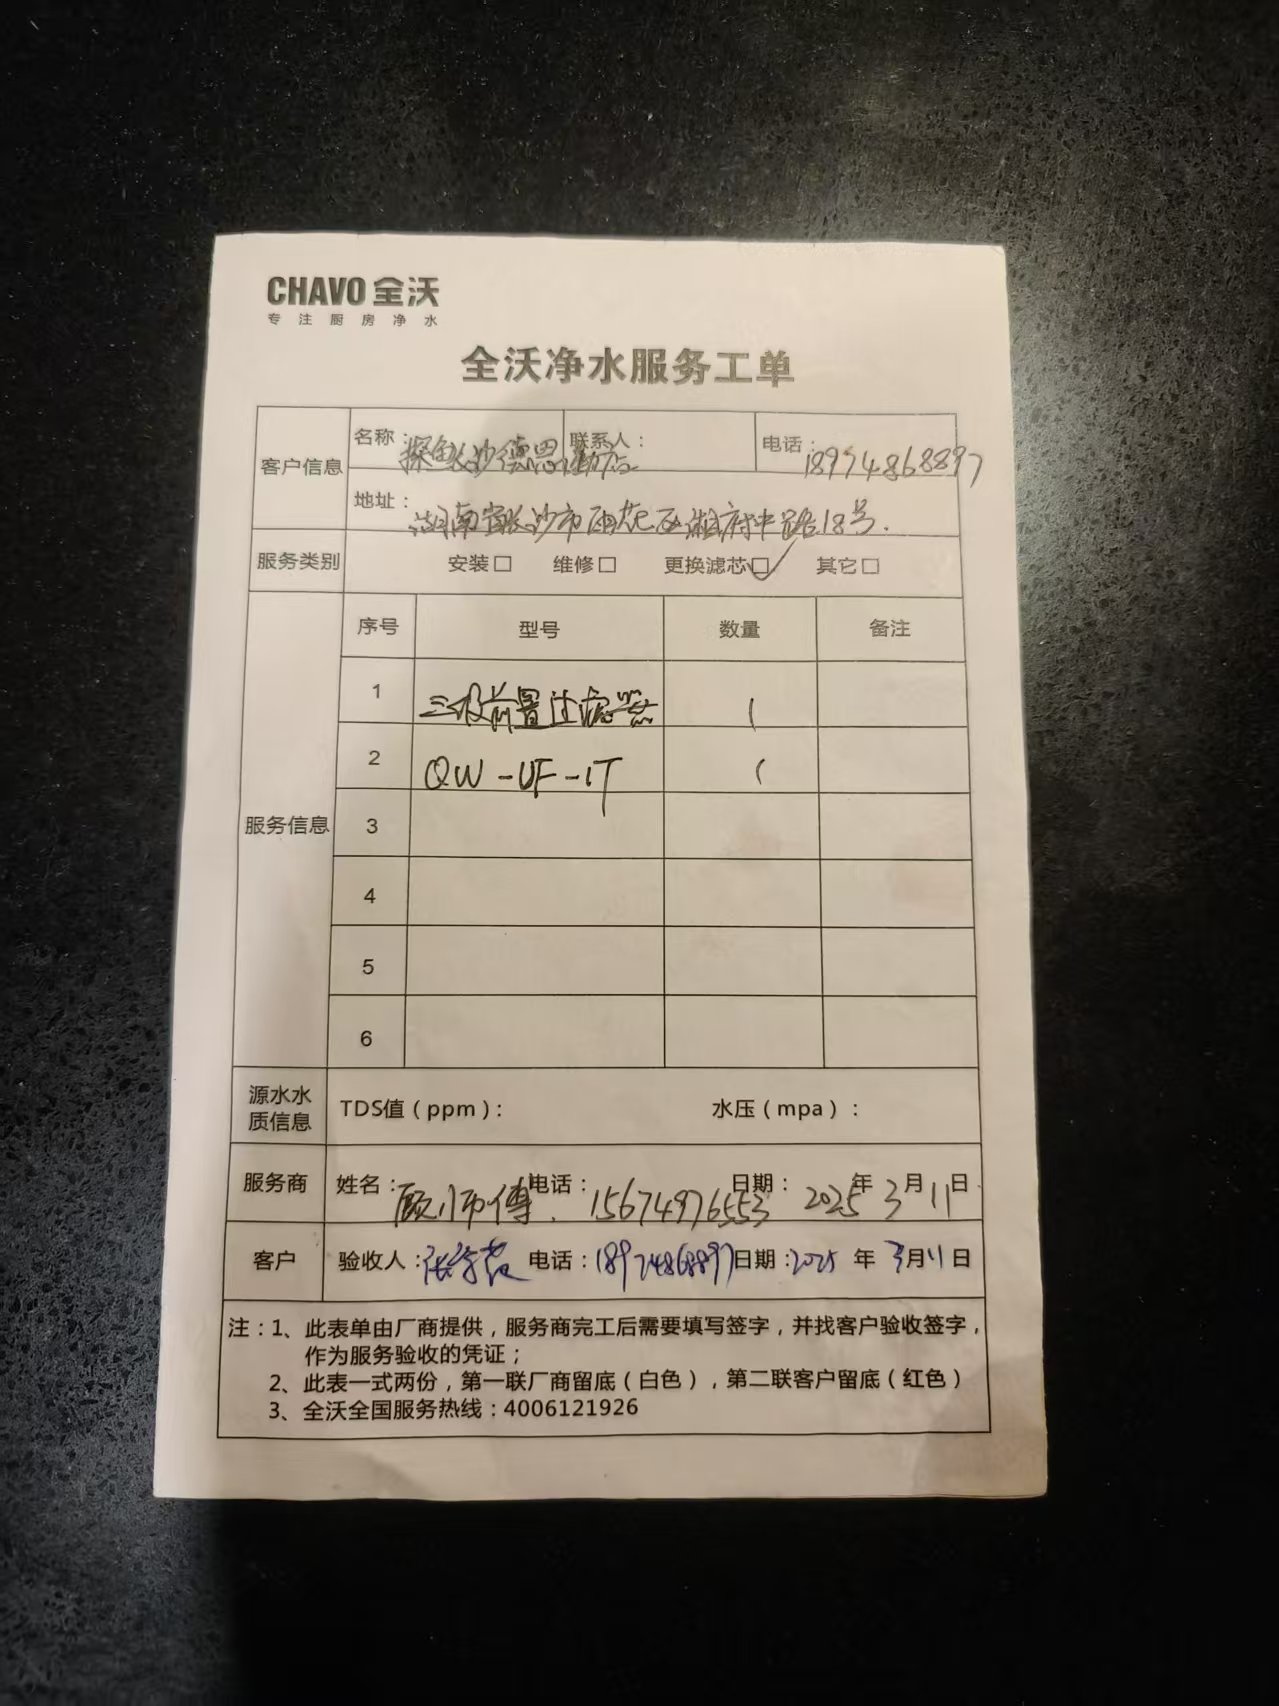 CHAVO 全沃
专注厨房净水
全沃净水服务工单
客户信息 名称：探鱼长沙德思勤店 联系人： 电话：18974868897
地址：湖南省长沙市雨花区湘府中路18号.
服务类别 安装□ 维修□ 更换滤芯☑ 其它□
服务信息 序号 型号 数量 备注
1 三级前置过滤器 1
2 QW-UF-1T 1
3
4
5
6
源水水质信息 TDS值（ppm）： 水压（mpa）：
服务商 姓名：顾师傅. 电话：15674976553 日期：2025年3月11日
客户 验收人：张 电话：18974868897 日期：2025年3月11日
注：1、此表单由厂商提供，服务商完工后需要填写签字，并找客户验收签字，
作为服务验收的凭证；
2、此表一式两份，第一联厂商留底（白色），第二联客户留底（红色）
3、全沃全国服务热线：4006121926